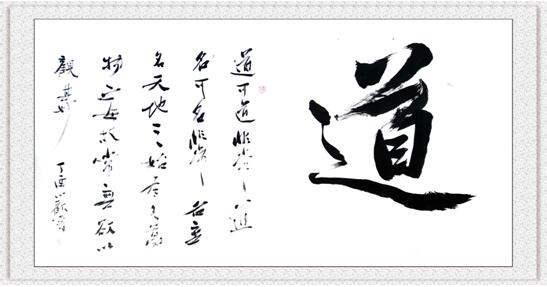 道
道可道非常道
名可名非常名無
名天地之始有名萬
物之母故常無欲以
觀其妙
丁酉